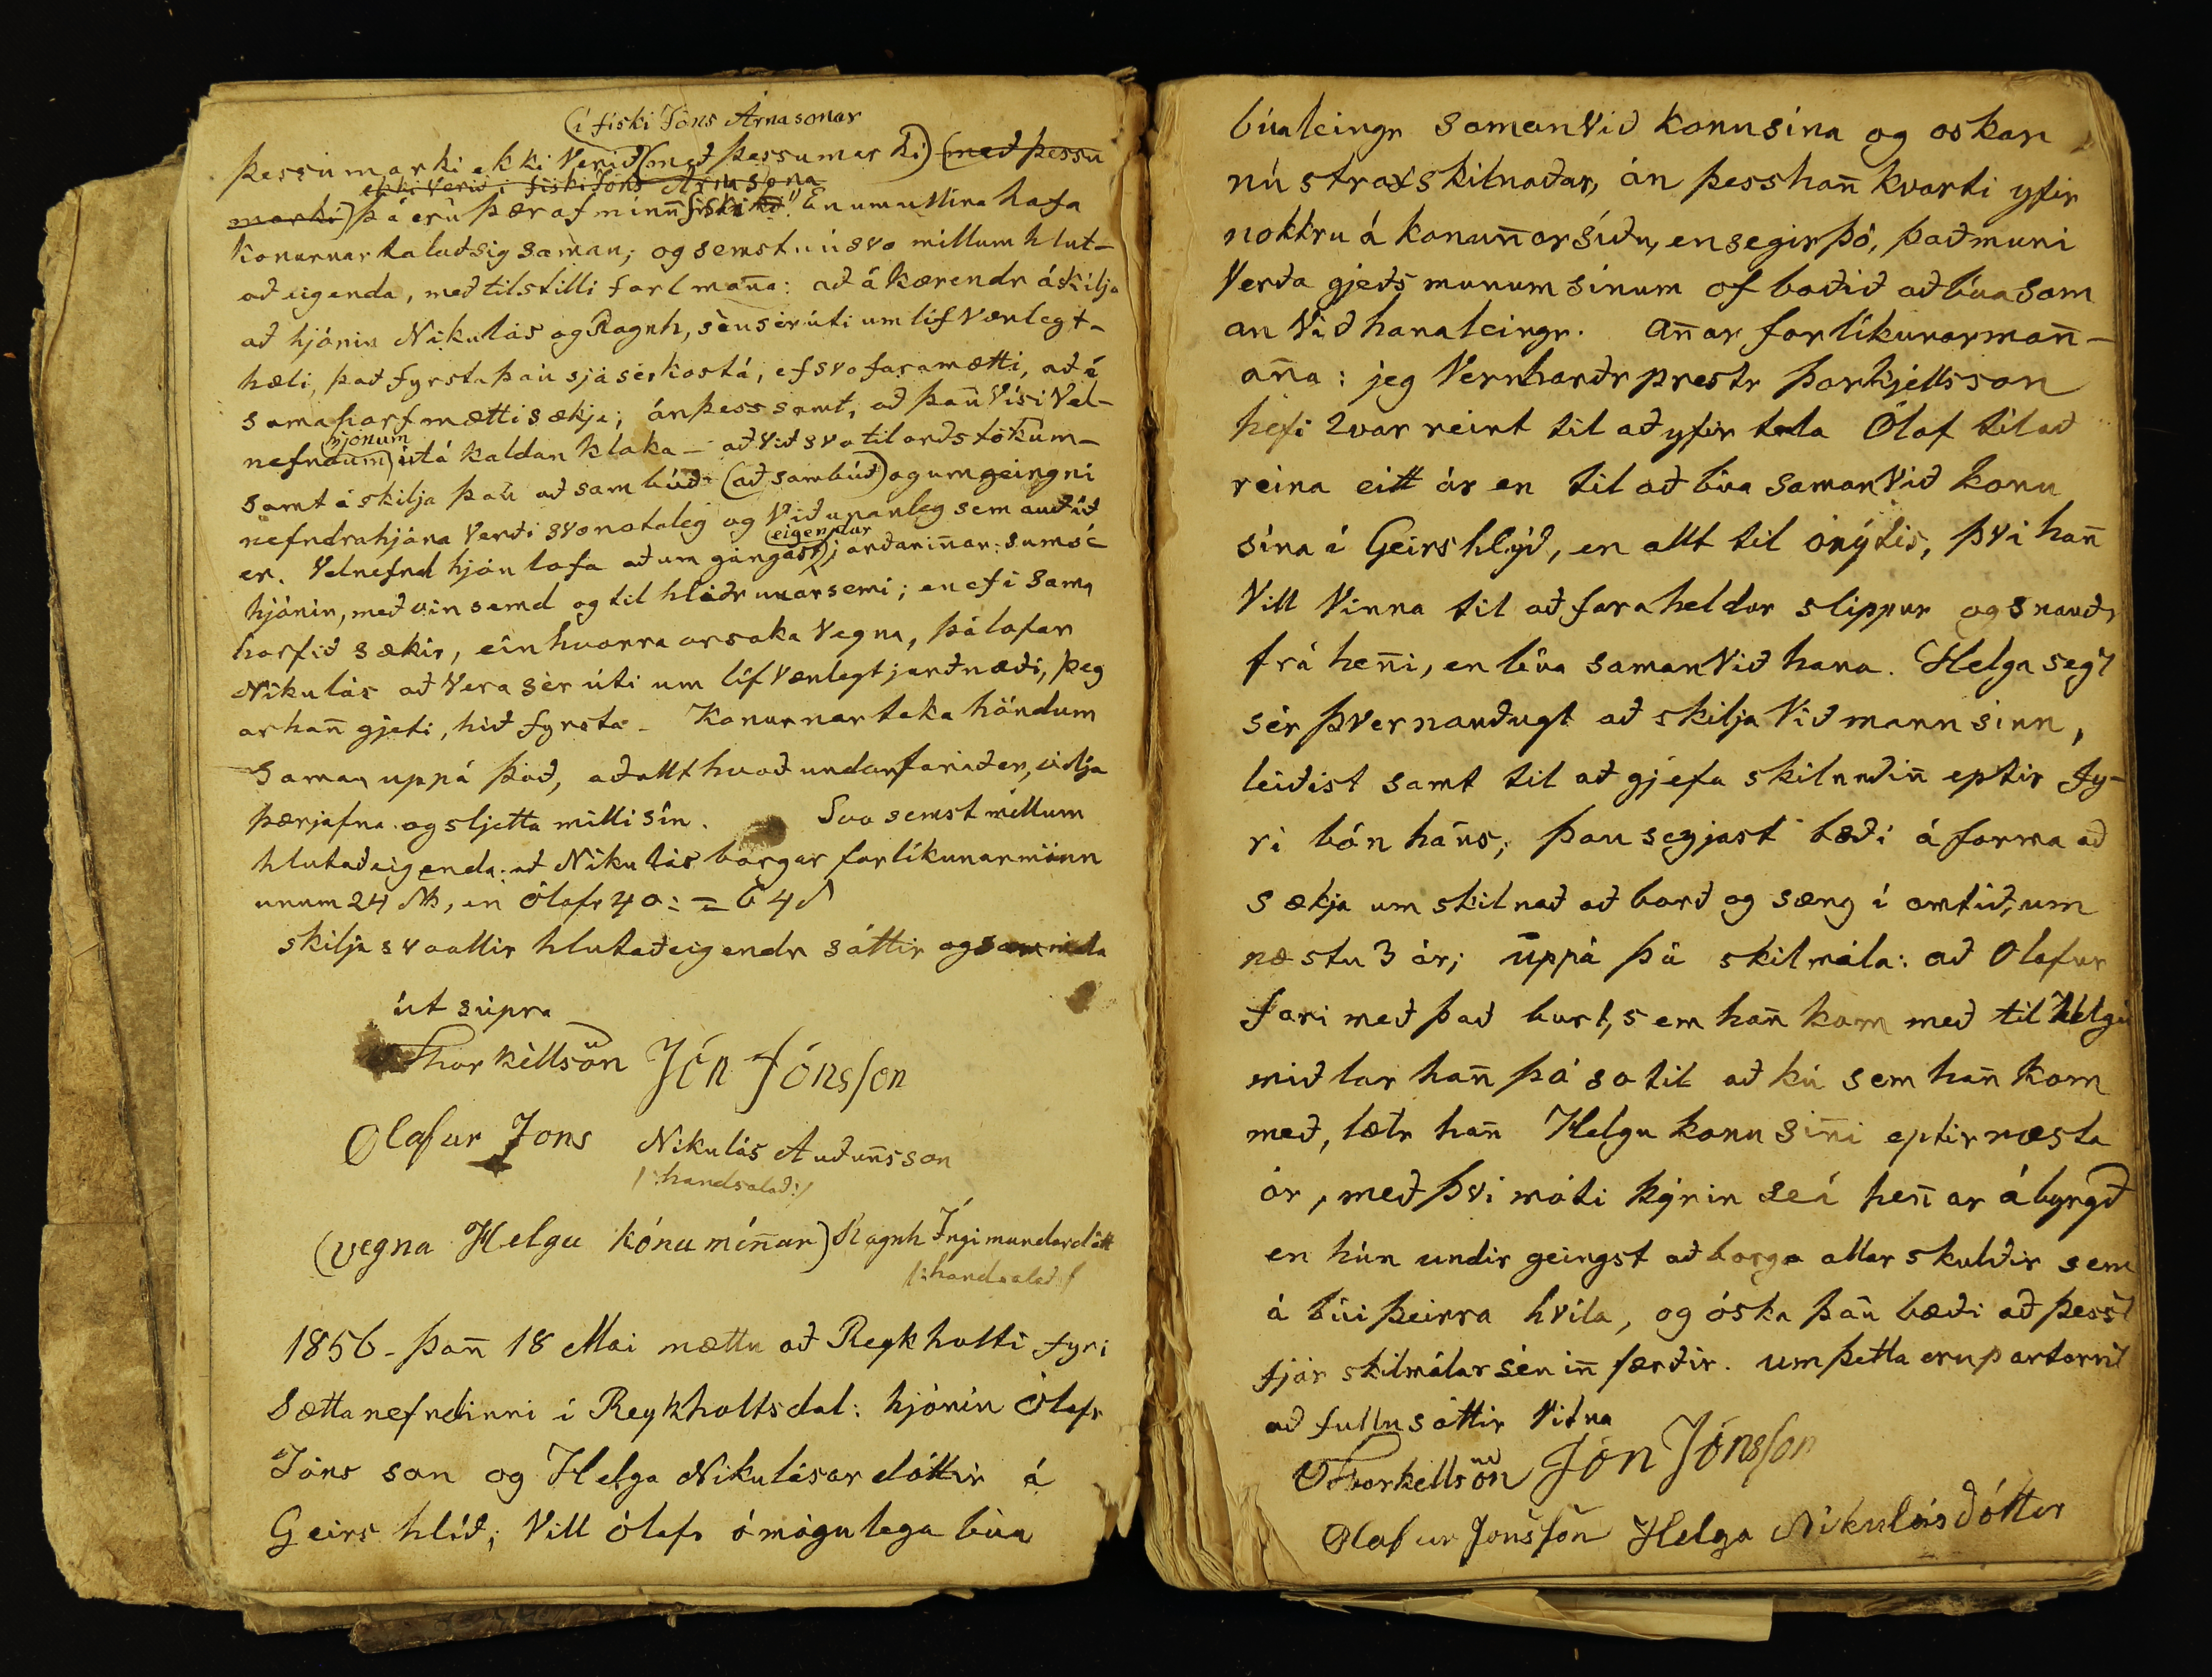 (í fiski Jóns Árnasonar
þessu marki ekki verið (með þessu marki) (með þessu
ekki verið í fiski Jóns Árnasona
marki) þá eru þær af mínum fiski. En um ullina hafa
konurnar talað sig saman; og semst nú svo millum hlut-
aðeigenda, með tilstilli forl.mana: að ákærendr áskilja
að hjónin Nikulás og Ragnh, séu sér úti um lífvænlegt-
hæli, það fyrsta þau sjá sér kost á, ef svo fara mætti, að í
sama horf mætti sækja; án þess samt, að þau vísi vel-
(hjonum
nefndum) út á kaldan klaka - að við svo til orðs tökum -
samt áskilja þau að sambúð (að sambúð) og umgeingni
nefndra hjóna verði svo notaleg og viðunanleg sem auðið
(eigendur
er. Velnefnd hjón lofa að umgángast) jarðarinnar: sumsé
hjónin, með vinsemd og tilhliðrunarsemi; en ef í sama
horfið sækir, einhvorra orsaka vegna, þá lofar
Nikulás að vera sèr úti um lífvænlegt jarðnæði, þeg
ar han̄ gjeti, hið fyrsta - Konurnar taka höndum
saman uppá það, að allt hvað undanfarið er, vilja
þær jafna og sljetta milli sín. Svo semst millum
hlutaðeigenda. að Nikulás borgar forlíkunarmönn
unum 24 , en Ólafr 40: = 64
skilja svo allir hlutaðeigendr sáttir og sammála
út supra
Thorkèllsön Jón Jónsson
Olafur Jons Nikulás Auðun̄sson
/:handsalað:/
(vegna Helgu kónu min̄ar) Ragnh Íngimundardótt
/:handsalað/
1856 - þan̄ 18 Mai mættu að Reykholti fyri
Sættanefndinni í Reykholtsdal: hjónin Ólafr
Jóns son og Helga Nikulásardóttir á
Geirshlíð; vill Ólafr ómögulega búa
búa leingr saman við konu sína og oskar
nú strax skilnaðar, án þess han̄ kvarti yfir
nokkru á konun̄ar síðu, en segir þó, það muni
verða gjeðsmunum sínum of boðið að búa sam
an við hana leingr. An̄ar forlíkunarman̄-
an̄a: jeg Vernharðr prestr Þorkjellsson
hefi 2var reint til að yfirtala Ólaf til að
reina eitt ár en til að búa saman við konu
sína í Geirshlýð, en allt til ónýtis, því han̄
vill vinna til að fara heldur slippur og snauðr
frá hen̄i, en búa saman við hana. Helga segi
sér þvernauðugt að skilja við mann sinn,
leiðist samt til að gjefa skilnaðin̄ eptir fy-
ri bón hans; þau segjast bæði áforma að
sækja um skilnað að borð og sæng í amtið, um
næstu 3 ár; uppá þá skilmála: að Olafur
fari með það burt, sem han̄ kom með til Helgu
miðlar han̄ þó so til að kú sem han̄ kom
með, lætr han̄ Helgu konu sin̄i eptir næsta
ár, með því móti kýrin sé í hen̄ar ábyrgð
en hún undirgeingst að borga allar skuldir sem
á búi þeirra hvíla, og óska þau bæði að þessi
fjár skilmálar séu in̄færðir. um þetta eru partarnir
að fullu sáttir vitna
Thorkellsön Jón Jónsson
Olafur Jónsson Helga Nikulásdóttir